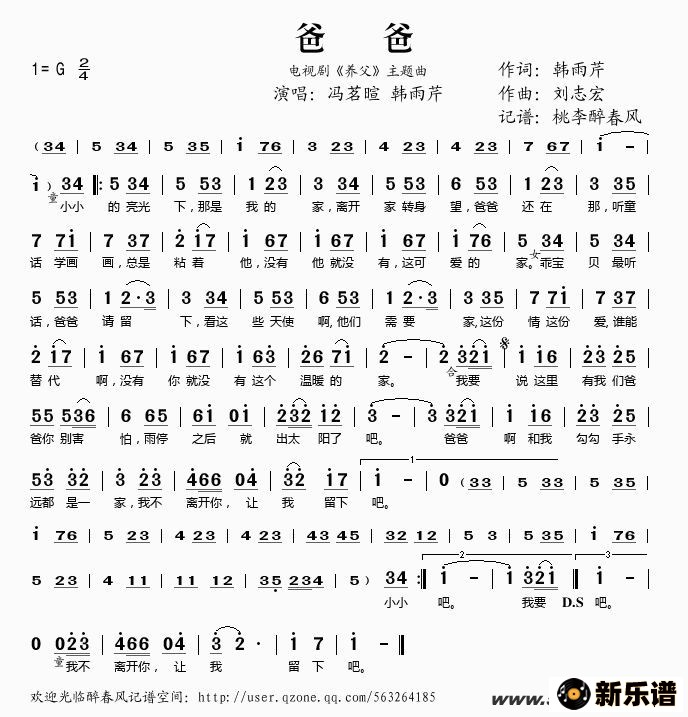 爸 爸
电视剧《养父》主题曲
1=G 2/4
作词：韩雨芹
演唱：冯茗暄 韩雨芹
作曲：刘志宏
记谱：桃李醉春风
（34 | 5 34 | 5 35 | i 76 | 3 23 | 4 23 | 4 23 | 7 67 | i –
i）34 ‖: 5 34 | 5 53 | 1 23 | 3 23 | 5 53 | 6 53 | 1 23 | 3 35
童 小小 的 亮光 下，那是 我的 家，离开 家 转身 望，爸爸 还 在 那，听童
7 7i | 7 37 | 2 i7 | i 67 | i 67 | i 67 | i 76 | 5 34 | 5 34
话 学画 画，总是 粘 着 他，没有 他 就没 有，这可 爱 的 家。女 乖宝 贝 最听
5 53 | 1 2·3 | 3 34 | 5 53 | 6 53 | 1 2·3 | 3 35 | 7 7i | 7 37
话，爸爸 请 留 下，看这 些 天使 啊，他们 需 要 家，这份 情 这份 爱，谁能
2 i7 | i 67 | i 67 | i 63 | 26 7i | 2 – | 2 32i | i i6 | 23 25
替 代 啊，没有 你 就没 有 这个 温暖 的 家。 合 我要 说 这里 有我 们爸
55 536 | 6 65 | 6i 0i | 232 i2 | 3 – | 3 32i | i i6 | 23 25
爸你 别害 怕，雨停 之后 就 出太 阳了 吧。 爸爸 啊 和我 勾勾 手永
53 32 | 3 23 | 466 04 | 32 i7 | i – | 0（33 | 5 33 | 5 35
1
远都 是一 家，我不 离开你， 让 我 留下 吧。
i 76 | 5 23 | 4 23 | 4 23 | 43 45 | 32 12 | 5 3 | 5 35 | i 76
5 23 | 12 12 | 12 12 | 35 234 | 5）34 :‖ i – | i 32i ‖ i –
2
3
小小 吧。 我要 D.S 吧。
0 023 | 466 04 | 3 2· | i 7 | i – ‖
童 我不 离开你， 让 我 留 下 吧。
欢迎光临醉春风记谱空间：http://user.qzone.qq.com/563264185
www.
新乐谱